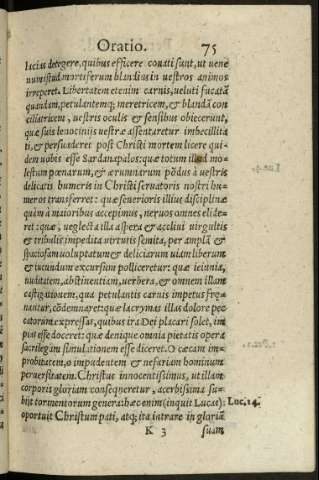 Oratio. 75
lacias detegere, quibus efficere conati sunt, ut uene
num istud mortiferum blandius in uestros animos
irreperet. Libertatem etenim carnis, ueluti fucatā
quandam, petulantemq; meretricem, & blandā con
ciliatricem, uestris oculis & sensibus obiecerunt,
quæ suis lenocinijs uestræ assentaretur imbecillita
ti, & persuaderet post Christi mortem licere qui-
dem uobis esse Sardanapalos: quæ totum illud mo-
lestum pœnarum, & ærumnarum pōdus à uestris
delicatis humeris in Christi seruatoris nostri hu-
meros transferret: quæ seuerioris illius disciplinæ
quàm à maioribus accepimus, neruos omnes elide-
ret: quæ, neglecta illa aspera & accliui uirgultis
& tribulis impedita uirtutis semita, per amplā &
spaciosam uoluptatum & deliciarum uiam liberum
& iucundum excursum polliceretur: quæ ieiunia,
nuditatem, abstinentiam, uerbera, & omnem illam
castigationem, qua petulantis carnis impetus fre-
nantur, cōdemnaret: quæ lacrymas illas dolore pec
catorum expressas, quibus ira Dei placari solet, im
pias esse doceret: quæ denique omnia pietatis opera
sacrilegam simulationem esse diceret. O cæcam im-
probitatem, o impudentem & nefariam hominum
peruersitatem. Christus innocentissimus, ut illam
corporis gloriam consequeretur, acerbissima su-
bijt tormentorum genera: hæc enim (inquit Lucas): Luc. 24.
oportuit Christum pati, atq; ita intrare in gloriā
K 3 suam